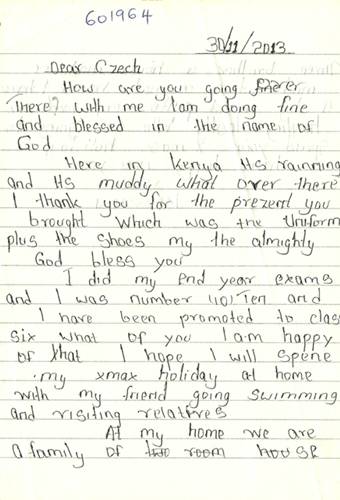 601964
30/11/2013
Dear Czech
How are you going
There? With me I am doing fine
and blessed in the name of
God
Here in Kenya its rainning
and its muddy what over there
I thank you for the prezent you
brought which was the Uniform
plus the shoes my the almighty
God bless you
I did my end year exams
and I was number (10) Ten and
I have been promoted to class
six what of you I am happy
of that I hope I will spene
my xmax holiday at home
with my friend going swimming
and visiting relatives
At my home we are
a family of two room house